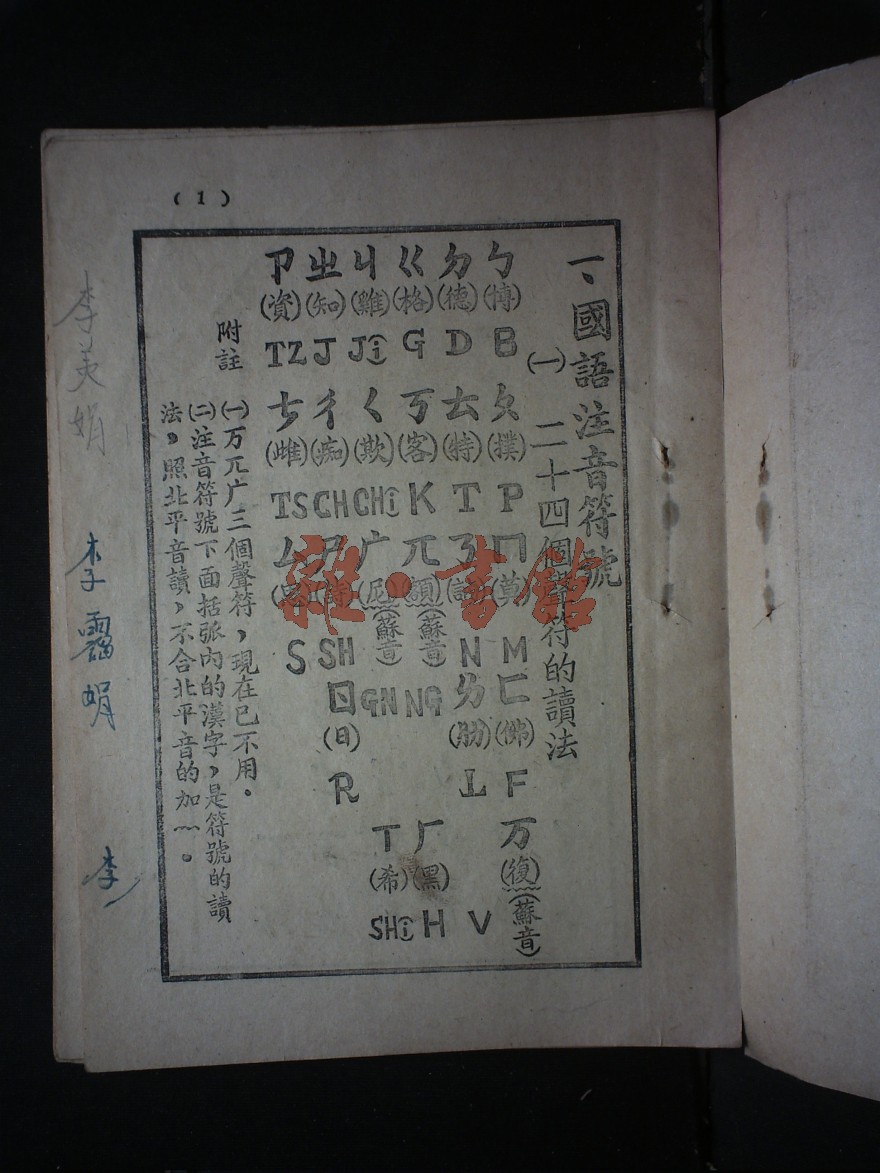 (1)
一、國語注音符號
㈠ 二十四個聲符的讀法
ㄅ(博) B ㄆ(撲) P ㄇ(莫) M ㄈ(佛) F ㄪ(復)(蘇音) V
ㄉ(德) D ㄊ(特) T ㄋ N ㄌ(肋) L
ㄍ(格) G ㄎ(客) K ㄫ(額)(蘇音) NG ㄏ(黑) H
ㄐ(雞) Ji ㄑ(欺) CHi ㄬ(尼)(蘇音) GN ㄒ(希) SHi
ㄓ(知) J ㄔ(痴) CH ㄕ(詩) SH ㄖ(日) R
ㄗ(資) TZ ㄘ(雌) TS ㄙ(思) S
附註
㈠ㄪㄫㄬ三個聲符，現在已不用。
㈡注音符號下面括弧內的漢字，是符號的讀
法，照北平音讀，不合北平音的加﹏。
李美娟
李 娟
李
雜·書館